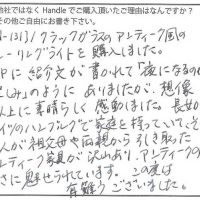 他社ではなく Handle でご購入頂いたご理由はなんですか？
その他ご自由にお書き下さい。
クラックガラスのアンティーク風の
シーリングライトを購入しました。
に紹介文が書かれて「夜になるの
しみ」のように ありましたが、想像
以上に素晴らしく感動しました。長女が
ドイツのハンブルグで家庭を持っていて、そ
人が祖父母や両親から引き取った
ンティーク家具が沢山あり、アンティークの
さに魅せられています。この度は
有難うございました。